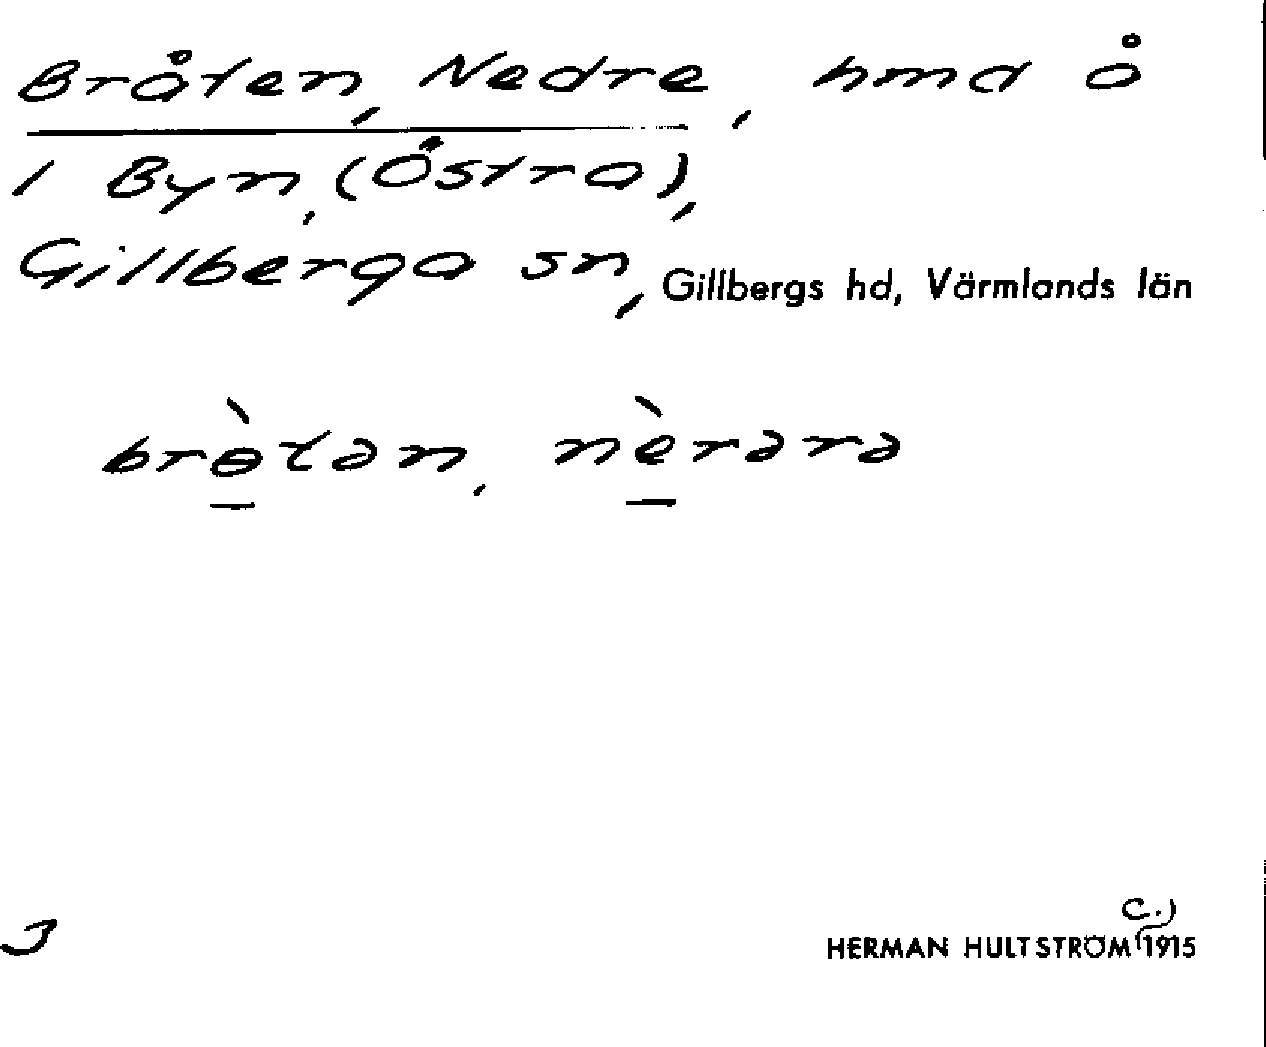 Bråten, Nedre, hmd å
1 Byn, (Östra),
Gillberga sn, Gillbergs hd, Värmlands län
brɵ̀tən, nèrərə
J
C.)
HERMAN HULTSTRÖM 1915